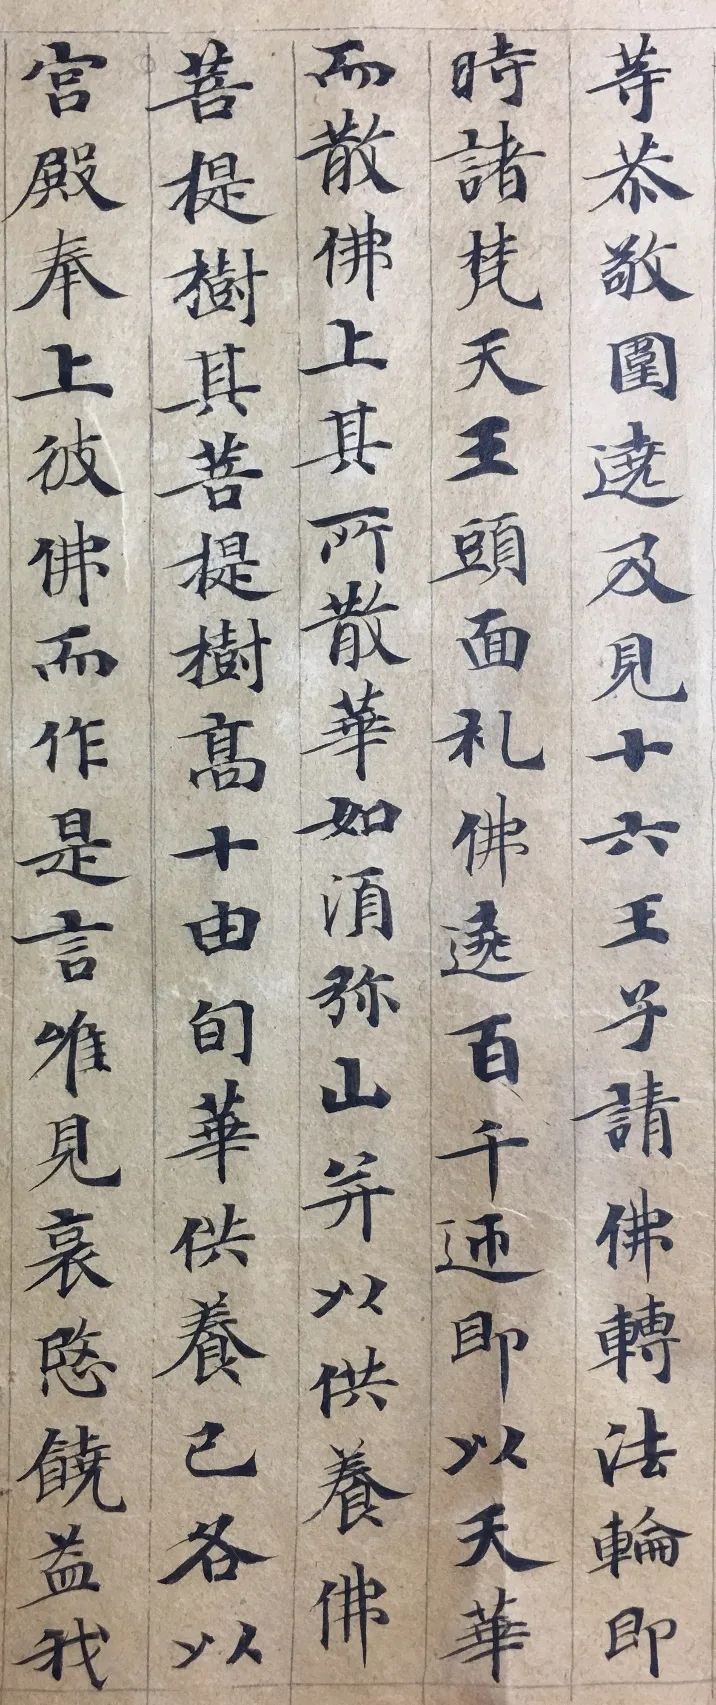 等恭敬圍遶及見十六王子請佛轉法輪即
時諸梵天王頭面礼佛遶百千迊即以天華
而散佛上其所散華如須弥山并以供養佛
菩提樹其菩提樹高十由旬華供養已各以
宮殿奉上彼佛而作是言唯見哀愍饒益我